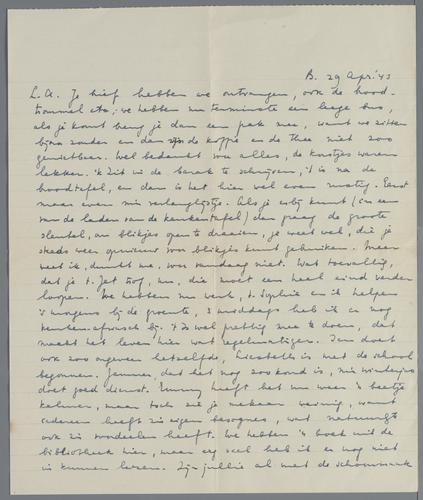 B. 29 Apr. '43
L. A. Je brief hebben we ontvangen, ook de brood-
trommel etc; we hebben nu tenminste een lege bus,
als je komt breng je dan een pak mee, want we zitten
bijna zonder en dan zijn de koffie en de thee niet zoo
genietbaar. Wel bedankt voor alles, de korstjes waren
lekker. 'k Zit in de barak te schrijven, 't is na de
broodtafel, en dan is het hier wel even rustig. Eerst
maar even mijn verlanglijstje. Als je erbij kunt (in een
van de laden van de keukentafel) dan graag de groote
sleutel, om blikjes open te draaien, je weet wel, die je
steeds weer opnieuw voor blikjes kunt gebruiken. Meer
weet ik, dunkt me, voor vandaag niet. Wat toevallig,
dat je t. Jet trof, nu, die moet een heel eind verder
loopen. We hebben nu werk, t. Sophie en ik helpen
's morgens bij de groente, 's middags heb ik er nog
keuken afwasch bij. 't Is wel prettig mee te doen, dat
maakt het leven hier wat regelmatiger. Ien doet
ook zoo ongeveer hetzelfde, Liesbeth is met de school
begonnen. Jammer, dat het nog zoo koud is, mijn winterjas
doet goed dienst. Emmy heeft het nu weer 'n beetje
kalmer, maar toch zie je mekaar weinig, want
iedereen heeft z'n eigen besognes, wat natuurlijk
ook z'n voordeelen heeft. We hebben 'n boek uit de
bibliotheek hier, maar erg veel heb ik er nog niet
in kunnen lezen. Zijn jullie al met de schoonmaak